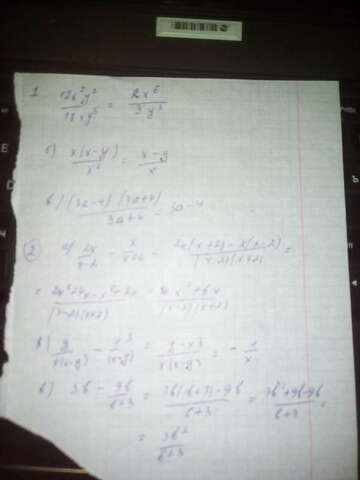 1 12x⁷y² / 18xy⁵ = 2x⁶ / 3y³
б) x(x-y) / x² = x-y / x
в) (3a-4)(3a+4) / 3a+4 = 3a-4
2 а) 2x / x-2 - x / x+2 = 2x(x+2)-x(x-2) / (x-2)(x+2) =
= 2x²+4x-x²+2x / (x-2)(x+2) = x²+6x / (x-2)(x+2)
в) 3b - 9b / b+3 = 3b(b+3)-9b / b+3 = 3b²+9b-9b / b+3 =
= 3b² / b+3